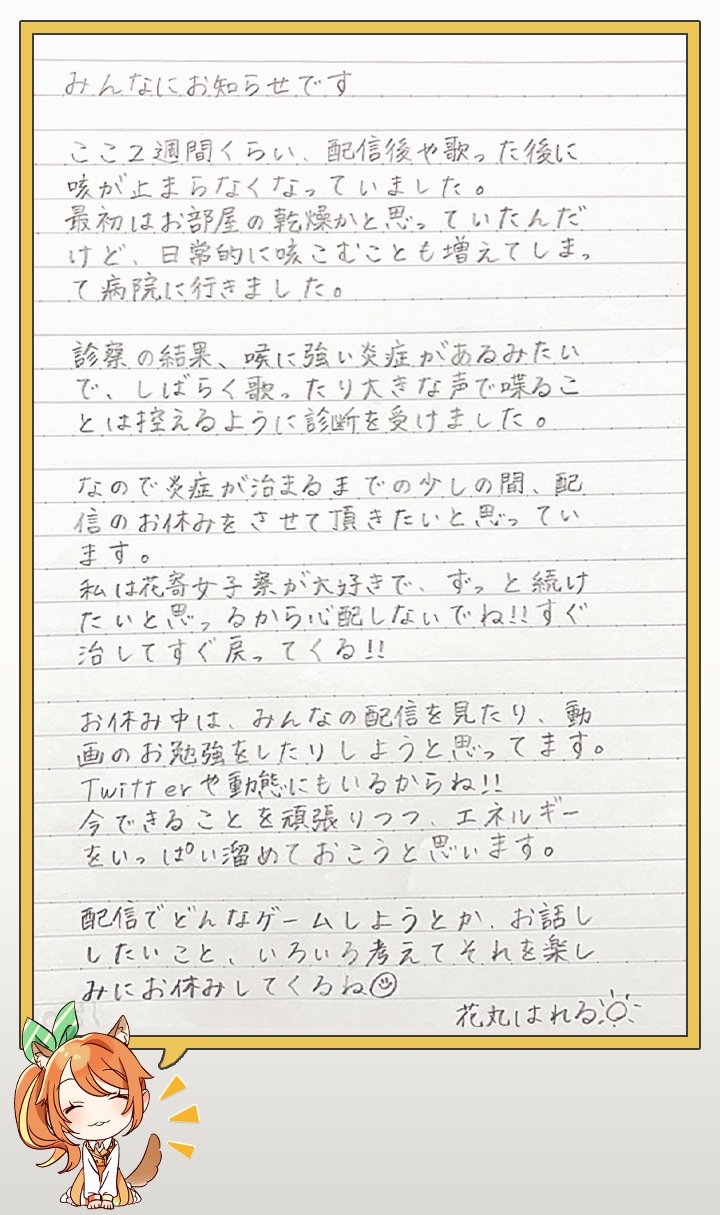 みんなにお知らせです
ここ2週間くらい、配信後や歌った後に
咳が止まらなくなっていました。
最初はお部屋の乾燥かと思っていたんだ
けど、日常的に咳こむことも増えてしまっ
て病院に行きました。
診察の結果、喉に強い炎症があるみたい
で、しばらく歌ったり大きな声で喋るこ
とは控えるように診断を受けました。
なので炎症が治まるまでの少しの間、配
信のお休みをさせて頂きたいと思ってい
ます。
私は花寄女子寮が大好きで、ずっと続け
たいと思ってるから心配しないでね!!すぐ
治してすぐ戻ってくる!!
お休み中は、みんなの配信を見たり、動
画のお勉強をしたりしようと思ってます。
Twitterや動態にもいるからね!!
今できることを頑張りつつ、エネルギー
をいっぱい溜めておこうと思います。
配信でどんなゲームしようとか、お話し
したいこと、いろいろ考えてそれを楽し
みにお休みしてくるね
花丸はれる